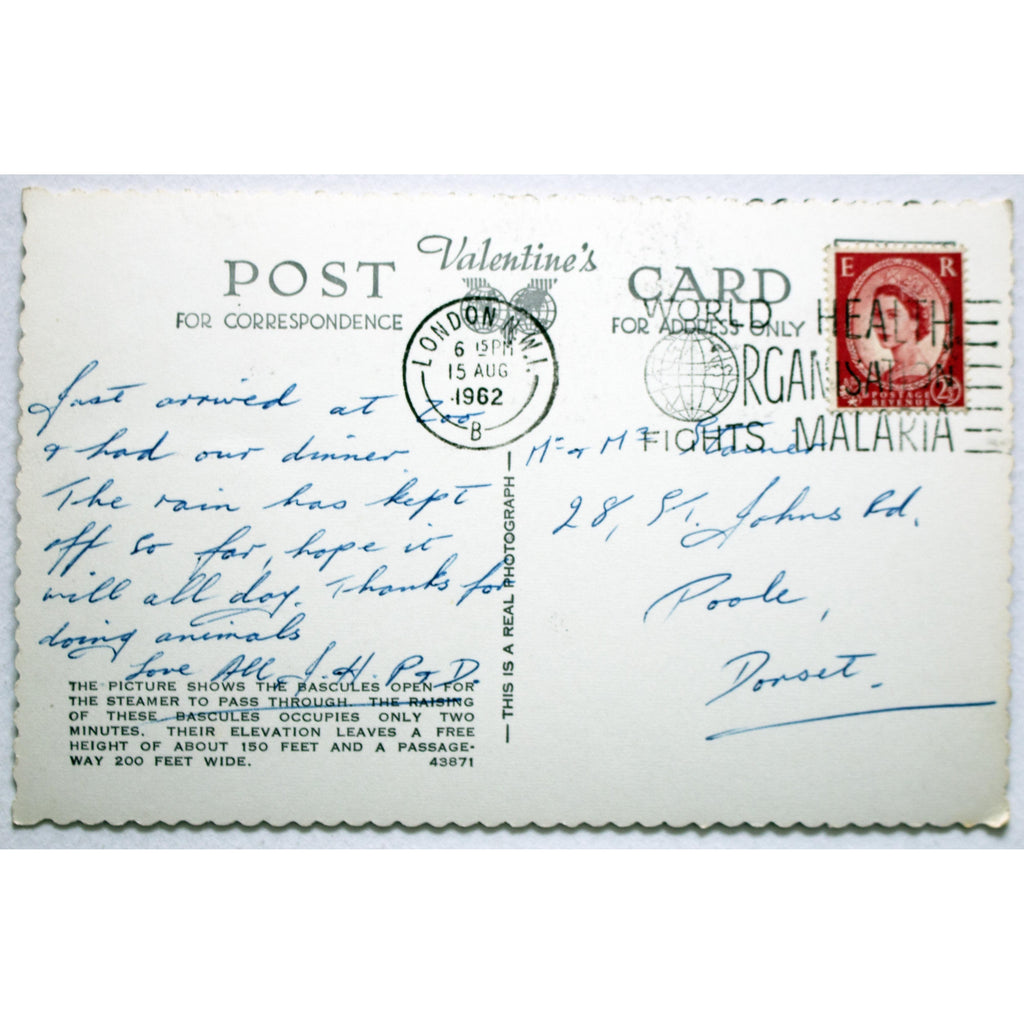 Valentine's
POST CARD
FOR CORRESPONDENCE
FOR ADDRESS ONLY
LONDON N.W.1.
6 15PM
15 AUG
1962
B
WORLD HEALTH
ORGANISATION
FIGHTS MALARIA
E R
POSTAGE
REVENUE
2½
Just arrived at Zoo
& had our dinner
The rain has kept
off so far, hope it
will all day. Thanks for
doing animals
Love All J. H. P & D.
THE PICTURE SHOWS THE BASCULES OPEN FOR
THE STEAMER TO PASS THROUGH. THE RAISING
OF THESE BASCULES OCCUPIES ONLY TWO
MINUTES. THEIR ELEVATION LEAVES A FREE
HEIGHT OF ABOUT 150 FEET AND A PASSAGE-
WAY 200 FEET WIDE. 43871
— THIS IS A REAL PHOTOGRAPH —
Mr & Mrs
28, St. Johns Rd,
Poole,
Dorset.